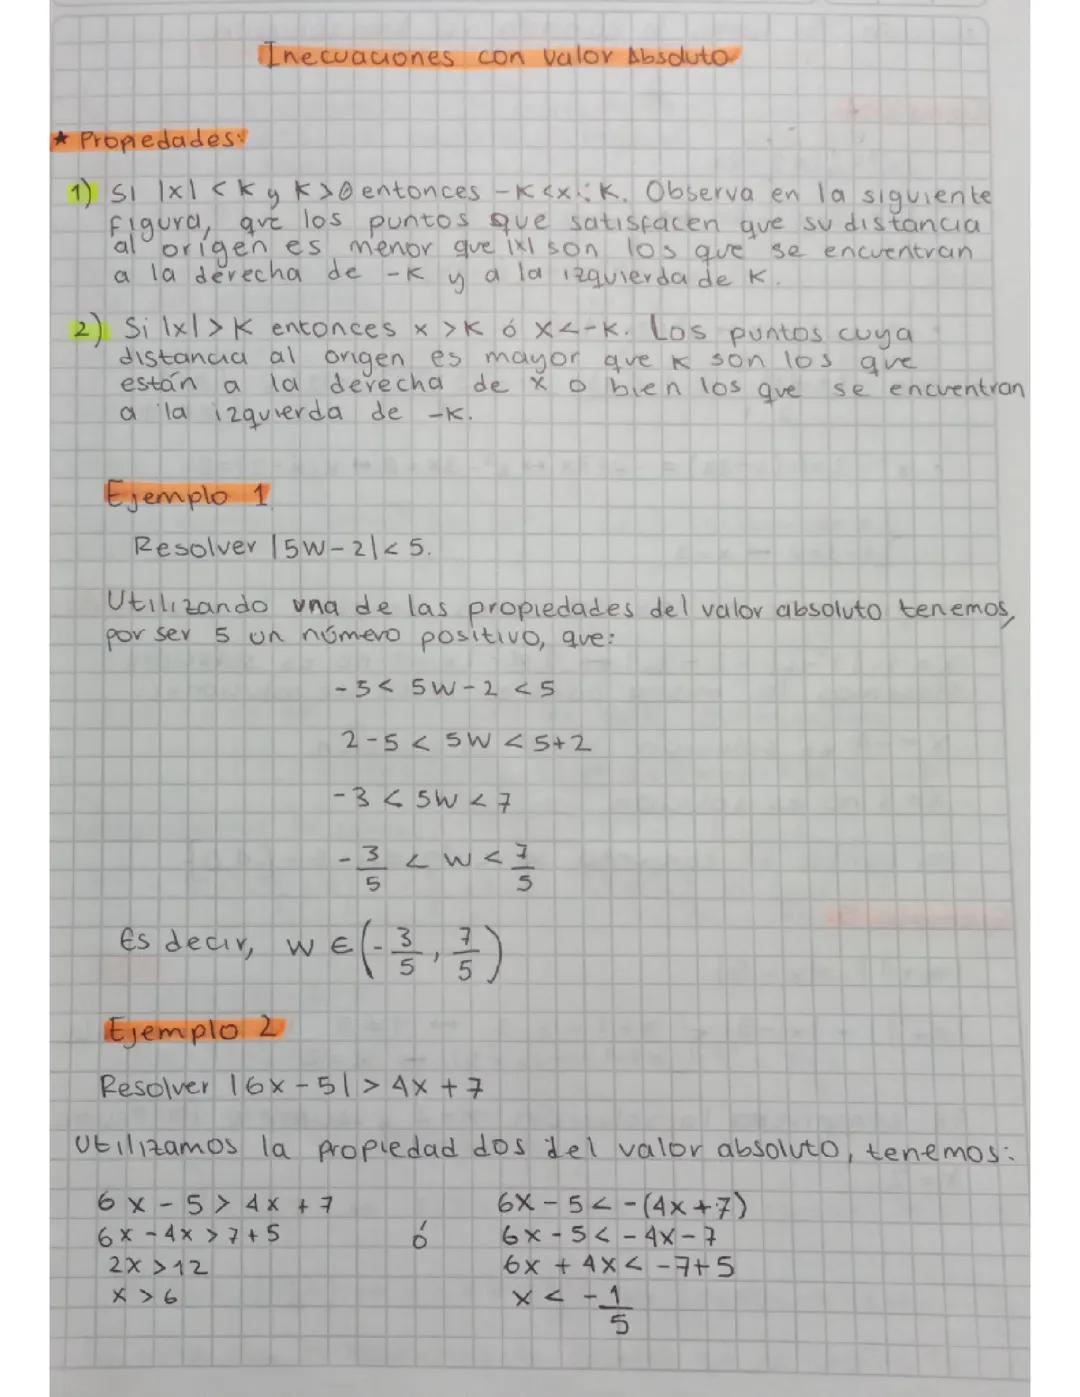 Inecuaciones con Valor Absoluto
★ Propiedades:
1) Si |x| < K y K > 0 entonces -K < x < K. Observa en la siguiente
figura, que los puntos que satisfacen que su distancia
al origen es menor que |x| son los que se encuentran
a la derecha de -K y a la izquierda de K.
2) Si |x| > K entonces x > K ó x < -K. Los puntos cuya
distancia al origen es mayor que K son los que
están a la derecha de x o bien los que se encuentran
a la izquierda de -K.
Ejemplo 1
Resolver |5W - 2| < 5.
Utilizando una de las propiedades del valor absoluto tenemos,
por ser 5 un número positivo, que:
-5 < 5W - 2 < 5
2 - 5 < 5W < 5 + 2
-3 < 5W < 7
-3/5 < W < 7/5
Es decir, W ∈ (-3/5, 7/5)
Ejemplo 2
Resolver |6x - 5| > 4x + 7
Utilizamos la propiedad dos del valor absoluto, tenemos:
6x - 5 > 4x + 7 6x - 5 < -(4x + 7)
6x - 4x > 7 + 5 ó 6x - 5 < -4x - 7
2x > 12 6x + 4x < -7 + 5
x > 6 x < -1/5